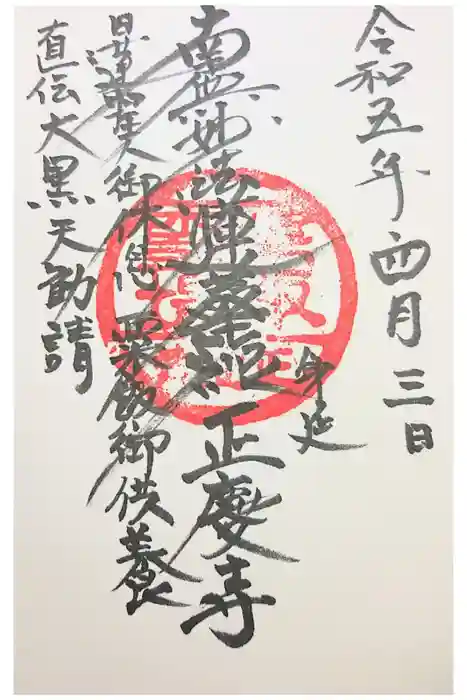 令和五年四月三日
身延
南無妙法蓮華経 正慶寺
日蓮聖人御休息 粟飯御供養
直伝大黒天勧請